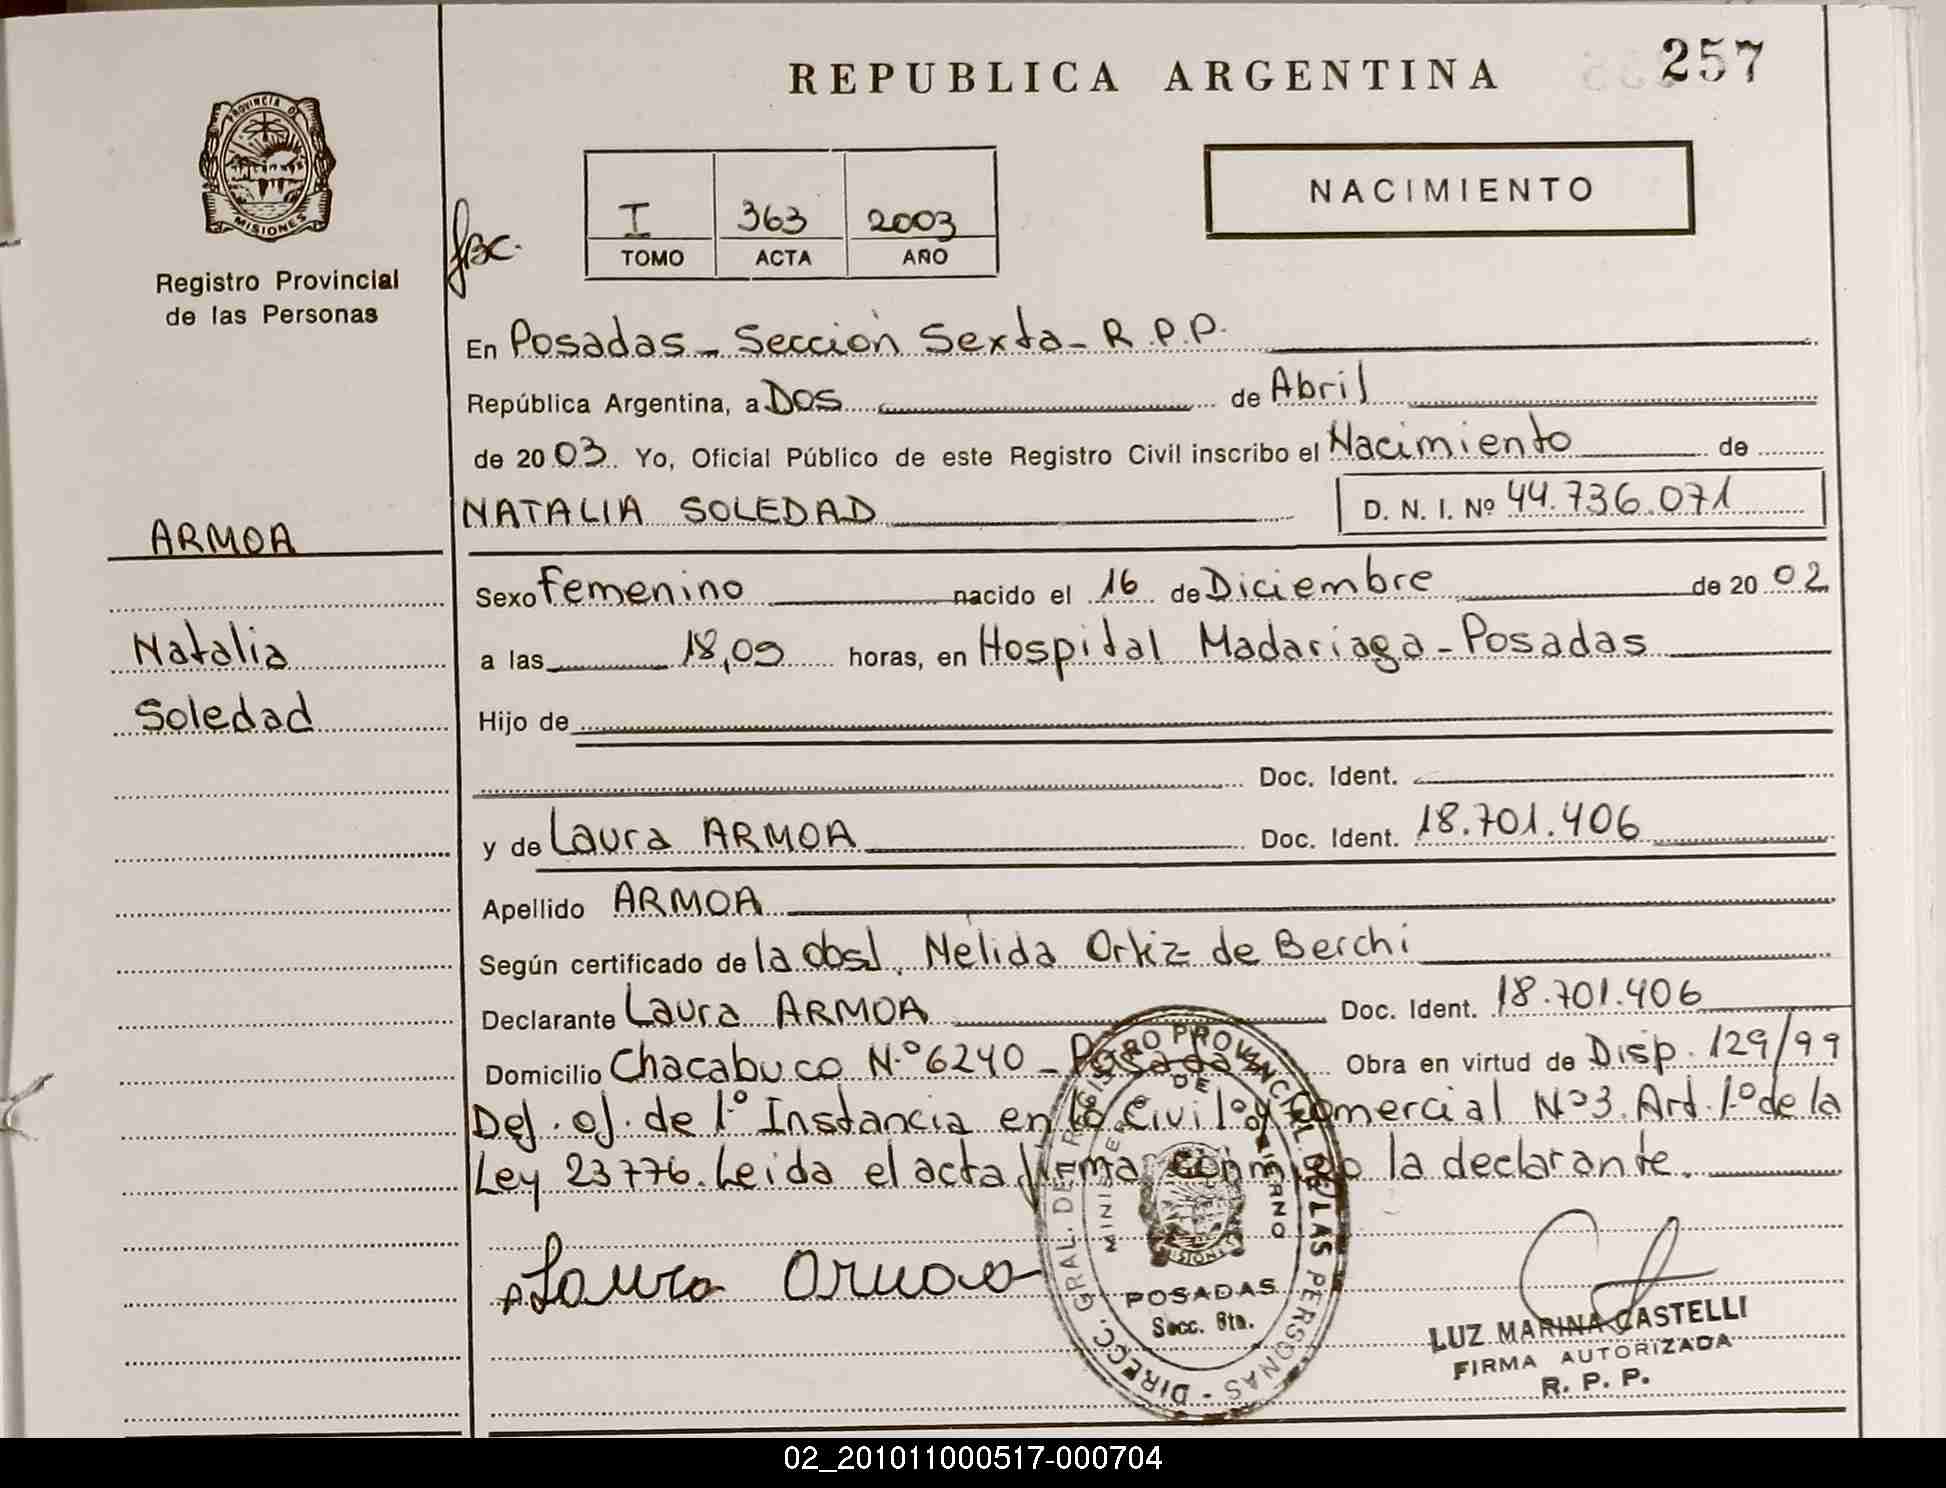 REPUBLICA ARGENTINA
257
PROVINCIA DE
MISIONES
Registro Provincial
de las Personas
I 363 2003
TOMO ACTA AÑO
NACIMIENTO
En Posadas - Sección Sexta - R.P.P.
República Argentina, a Dos de Abril
de 2003. Yo, Oficial Público de este Registro Civil inscribo el Nacimiento de
NATALIA SOLEDAD D. N. I. Nº 44.736.071
ARMOA
Sexo Femenino nacido el 16 de Diciembre de 2002
Natalia
a las 18,09 horas, en Hospital Madariaga - Posadas
Soledad
Hijo de
Doc. Ident.
y de Laura ARMOA Doc. Ident. 18.701.406
Apellido ARMOA
Según certificado de la obst. Nelida Ortiz de Berchi
Declarante Laura ARMOA Doc. Ident. 18.701.406
Domicilio Chacabuco N.º 6240 - Posadas Obra en virtud de Disp. 129/99
de 1.º Instancia en lo Civil y Comercial Nº 3. Art. 1.º de la
Ley 23776. Leida el acta firma conmigo la declarante.
Laura Armoa
DIRECC. GRAL. DEL REGISTRO PROVINCIAL DE LAS PERSONAS
MINISTERIO DE GOBIERNO
MISIONES
POSADAS
Secc. 6ta.
LUZ MARINA CASTELLI
FIRMA AUTORIZADA
R. P. P.
02_201011000517-000704